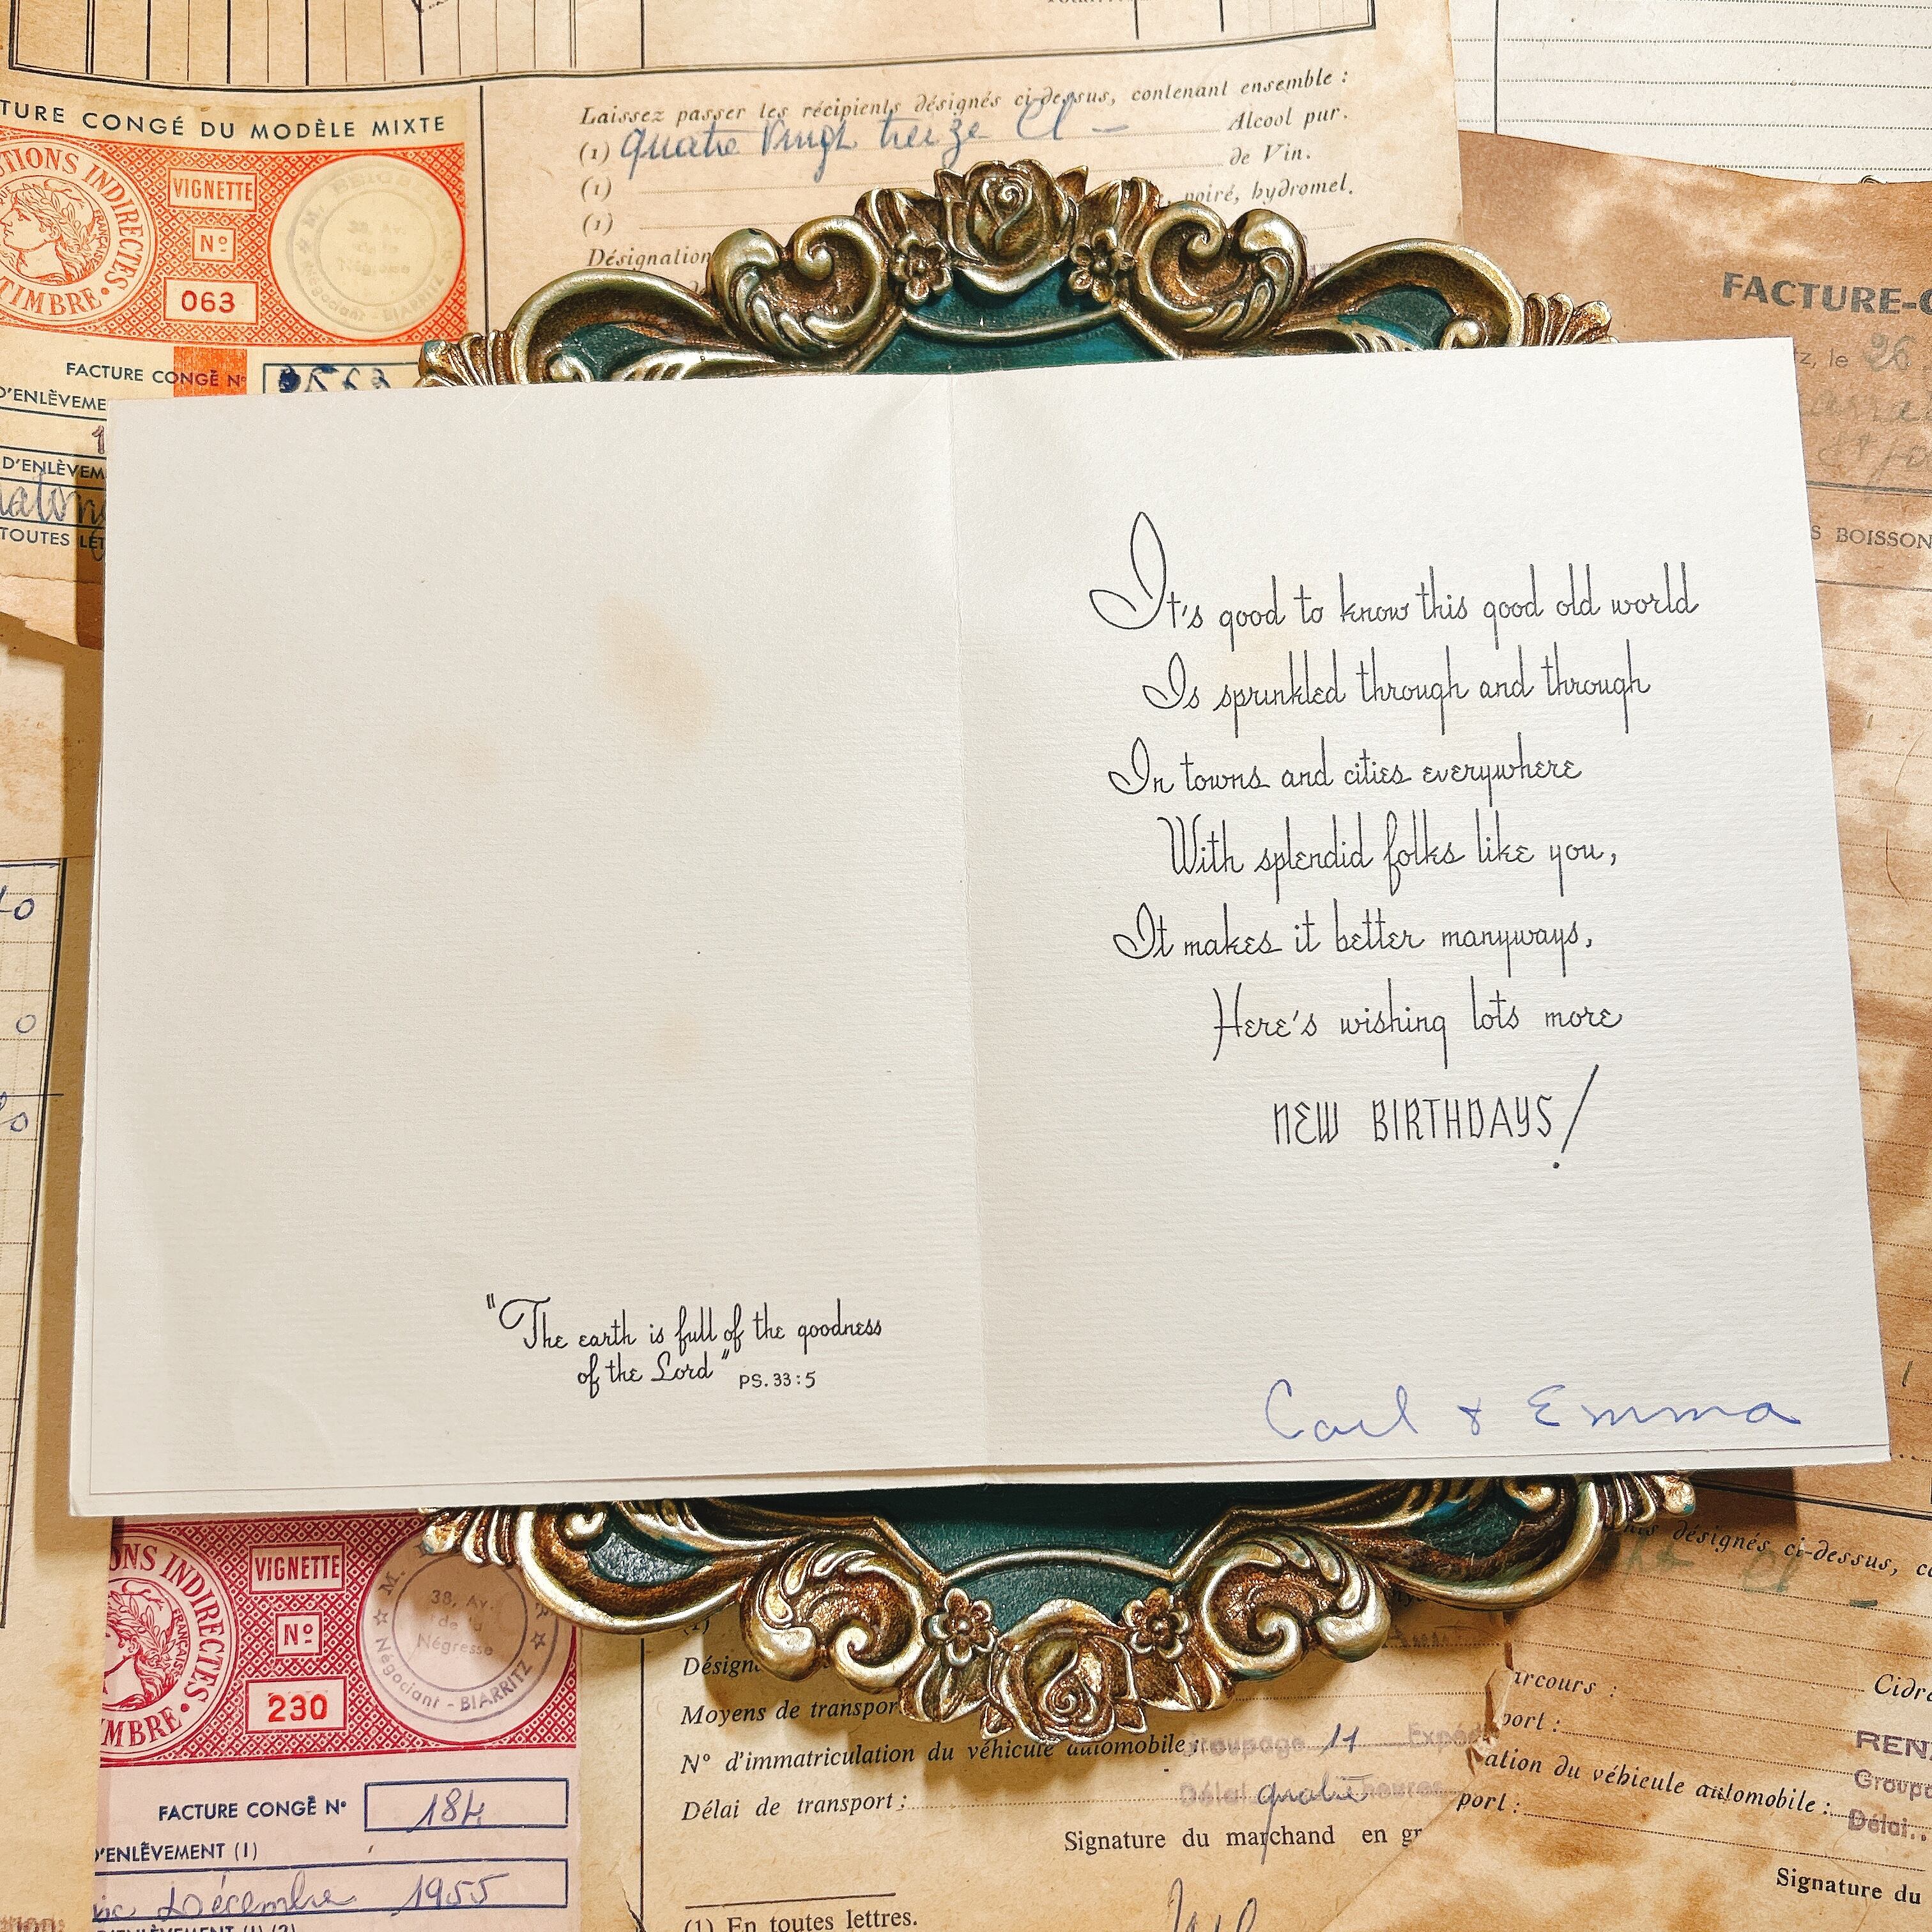 TURE CONGÉ DU MODÈLE MIXTE
TIONS INDIRECTES
TIMBRE
FRANÇAISE
VIGNETTE
Nº
063
38, Av.
de la
Négresse
Négociant - BIARRITZ
FACTURE CONGÉ Nº
D'ENLÈVEME
D'ENLÈVEM
TOUTES LET
Laissez passer les récipients désignés ci-dessus, contenant ensemble :
(1) quatre Vingt treize Cl — Alcool pur.
(1) de Vin.
(1) poiré, hydromel.
(1)
Désignation
FACTURE-C
tz, le 26
S BOISSON
It's good to know this good old world
Is sprinkled through and through
In towns and cities everywhere
With splendid folks like you,
It makes it better manyways,
Here's wishing lots more
NEW BIRTHDAYS!
"The earth is full of the goodness
of the Lord" PS. 33:5
Carl & Emma
ONS INDIRECTES
MBRE
FRANÇAISE
VIGNETTE
Nº
230
M.
38, Av.
de la
Négresse
Négociant - BIARRITZ
FACTURE CONGÉ Nº 184
D'ENLÈVEMENT (1)
Décembre 1955
(1)
Désign
Moyens de transpor
Nº d'immatriculation du véhicule automobile : Groupage 11 Expéd
Délai de transport : Délai quatre heures
Signature du marchand en gr
(1) En toutes lettres.
désignés ci-dessus, co
arcours : Cidr
port :
ation du véhicule automobile : Groupa
port : Délai..
REN
Signature du